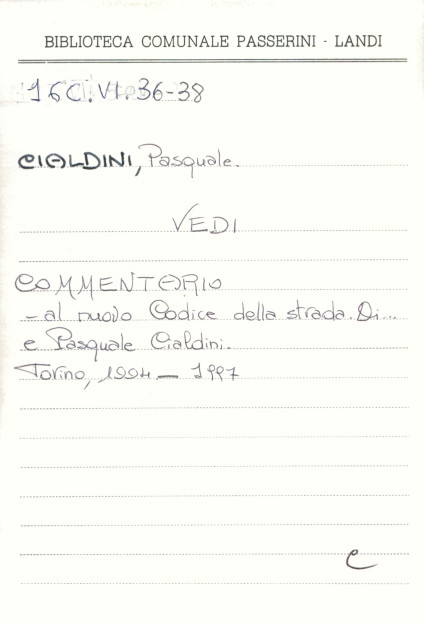 BIBLIOTECA COMUNALE PASSERINI - LANDI
16C.VI.36-38
CIALDINI, Pasquale.
VEDI
COMMENTARIO
- al nuovo Codice della strada. Di...
e Pasquale Cialdini.
Torino, 1994 - 1997
C